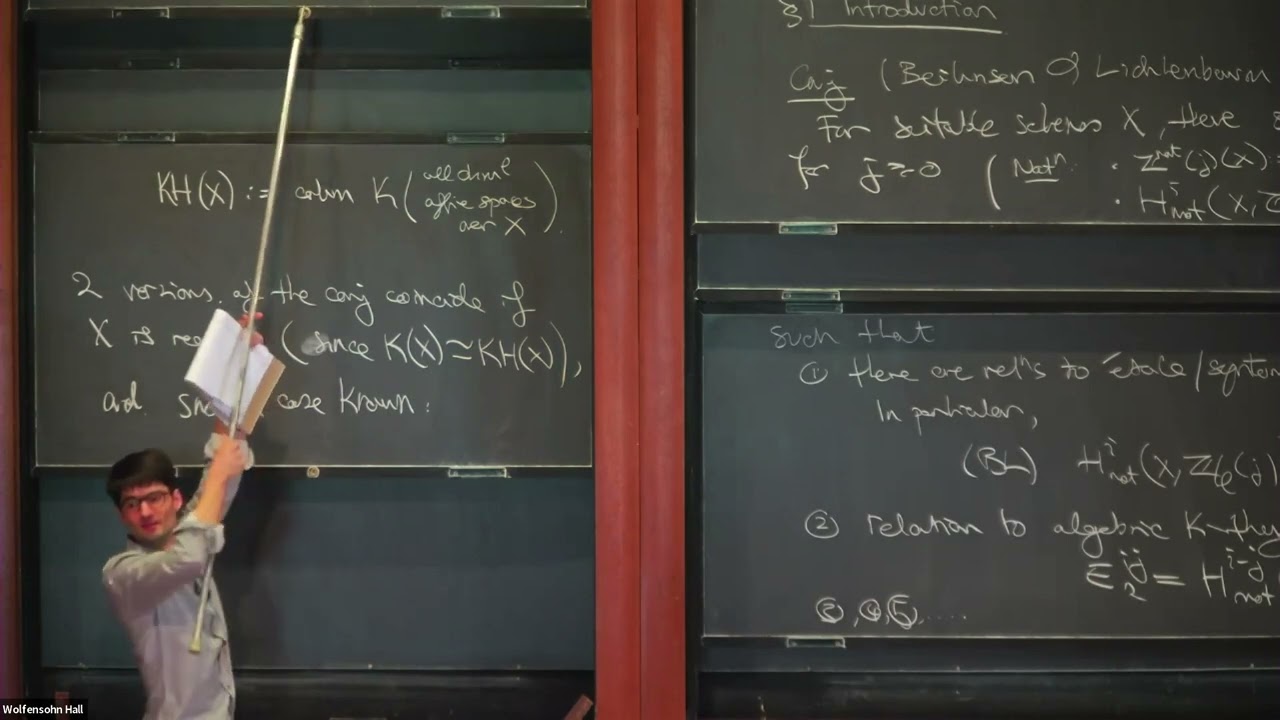 KH(X) := colim K( all diml
affine spaces
over X ).
2 versions of the conj coincide if
X is ( since K(X) ≃ KH(X) ),
and case known:
§1 Introduction
Conj (Beilinson & Lichtenbaum
For suitable schemes X, there
for j ≥ 0 ( Notn: · ℤ^mot(j)(X)
· H^i_mot(X, ℤ
such that
① there are rel'ns to étale/syntom
In particular,
(BL) H^i_mot(X, ℤ/ℓ(j)
② relation to algebraic K-they
E_2^{ij} = H^{i-j}_mot
③, ④, ⑤, .....
Wolfensohn Hall